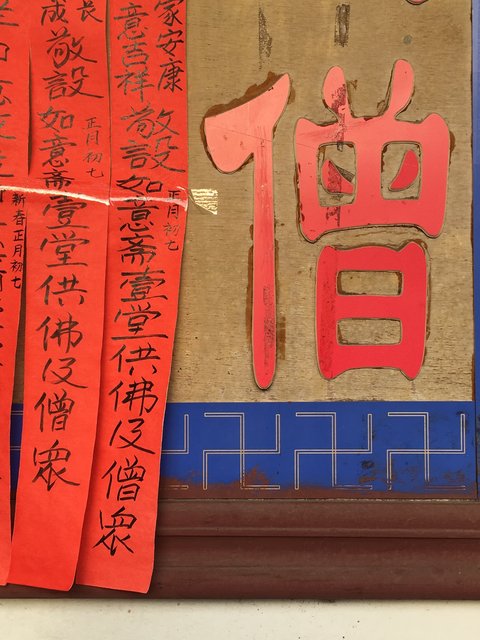 僧
家安康
意吉祥
敬設如意斋壹堂供佛及僧眾
正月初七
長
成
敬設如意斋壹堂供佛及僧眾
正月初七
新春正月初七